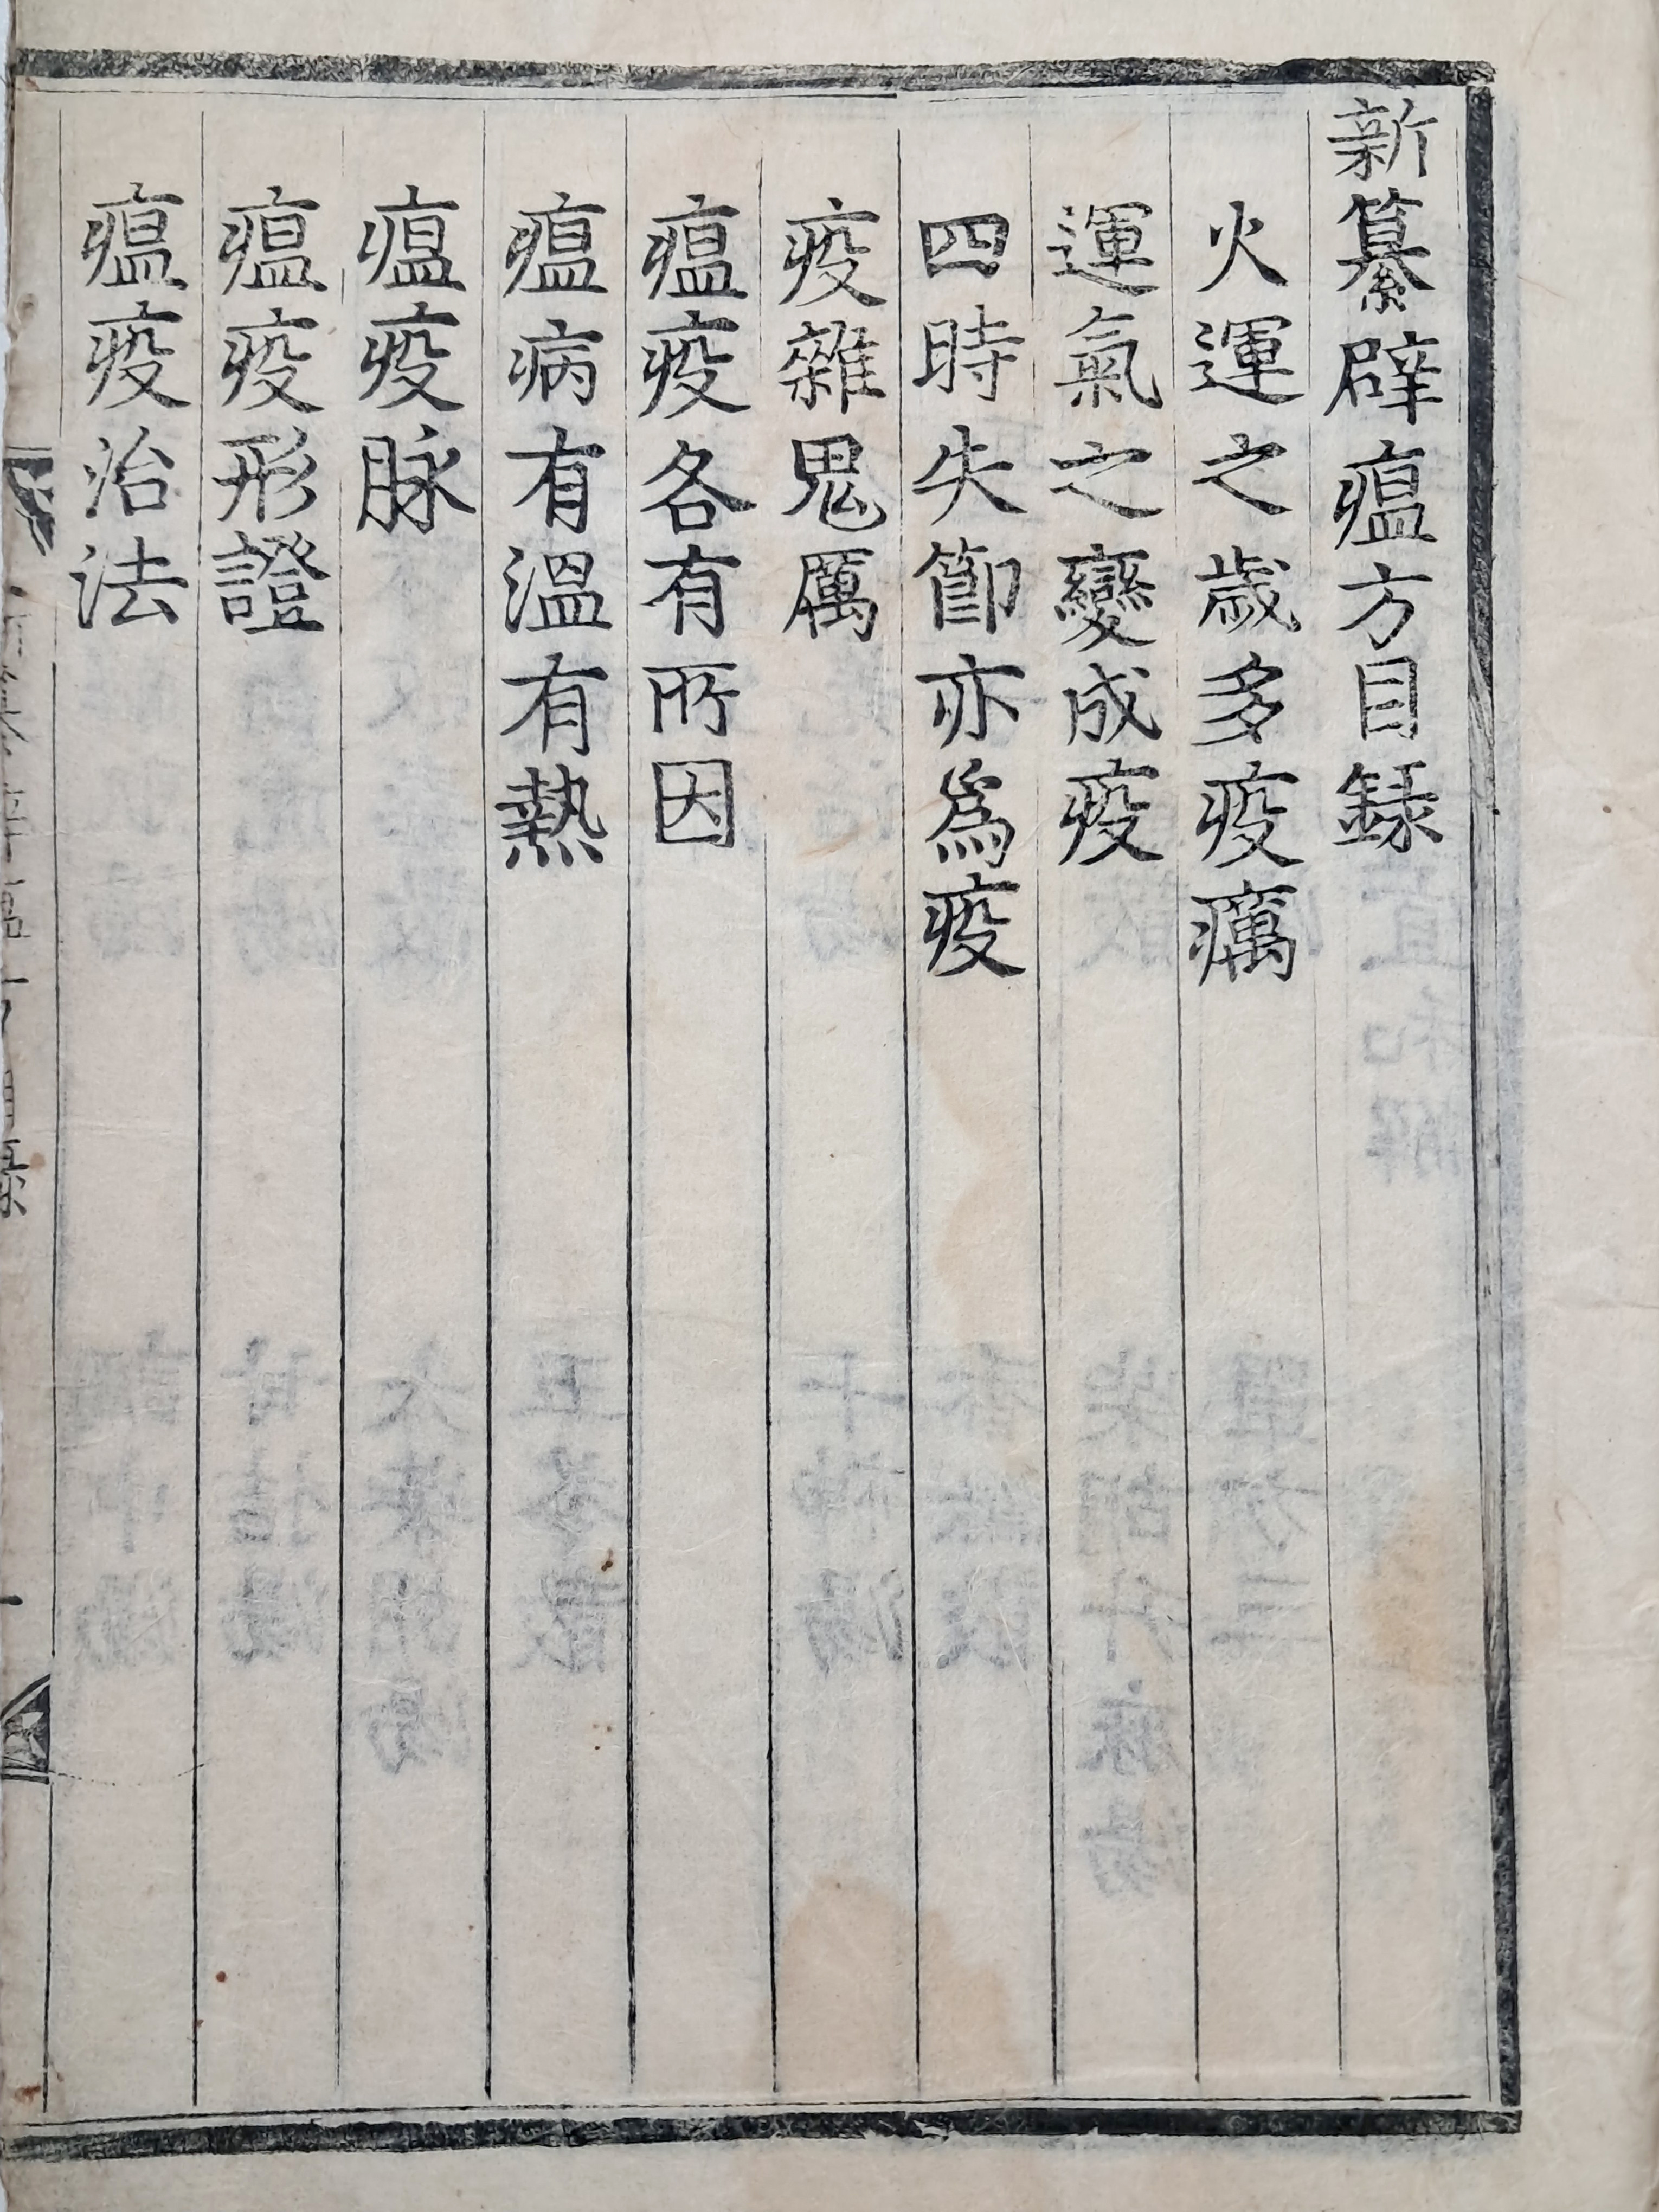 新纂辟瘟方目録
火運之歲多疫癘
運氣之變成疫
四時失節亦爲疫
疫雜鬼厲
瘟疫各有所因
瘟病有溫有熱
瘟疫脉
瘟疫形證
瘟疫治法